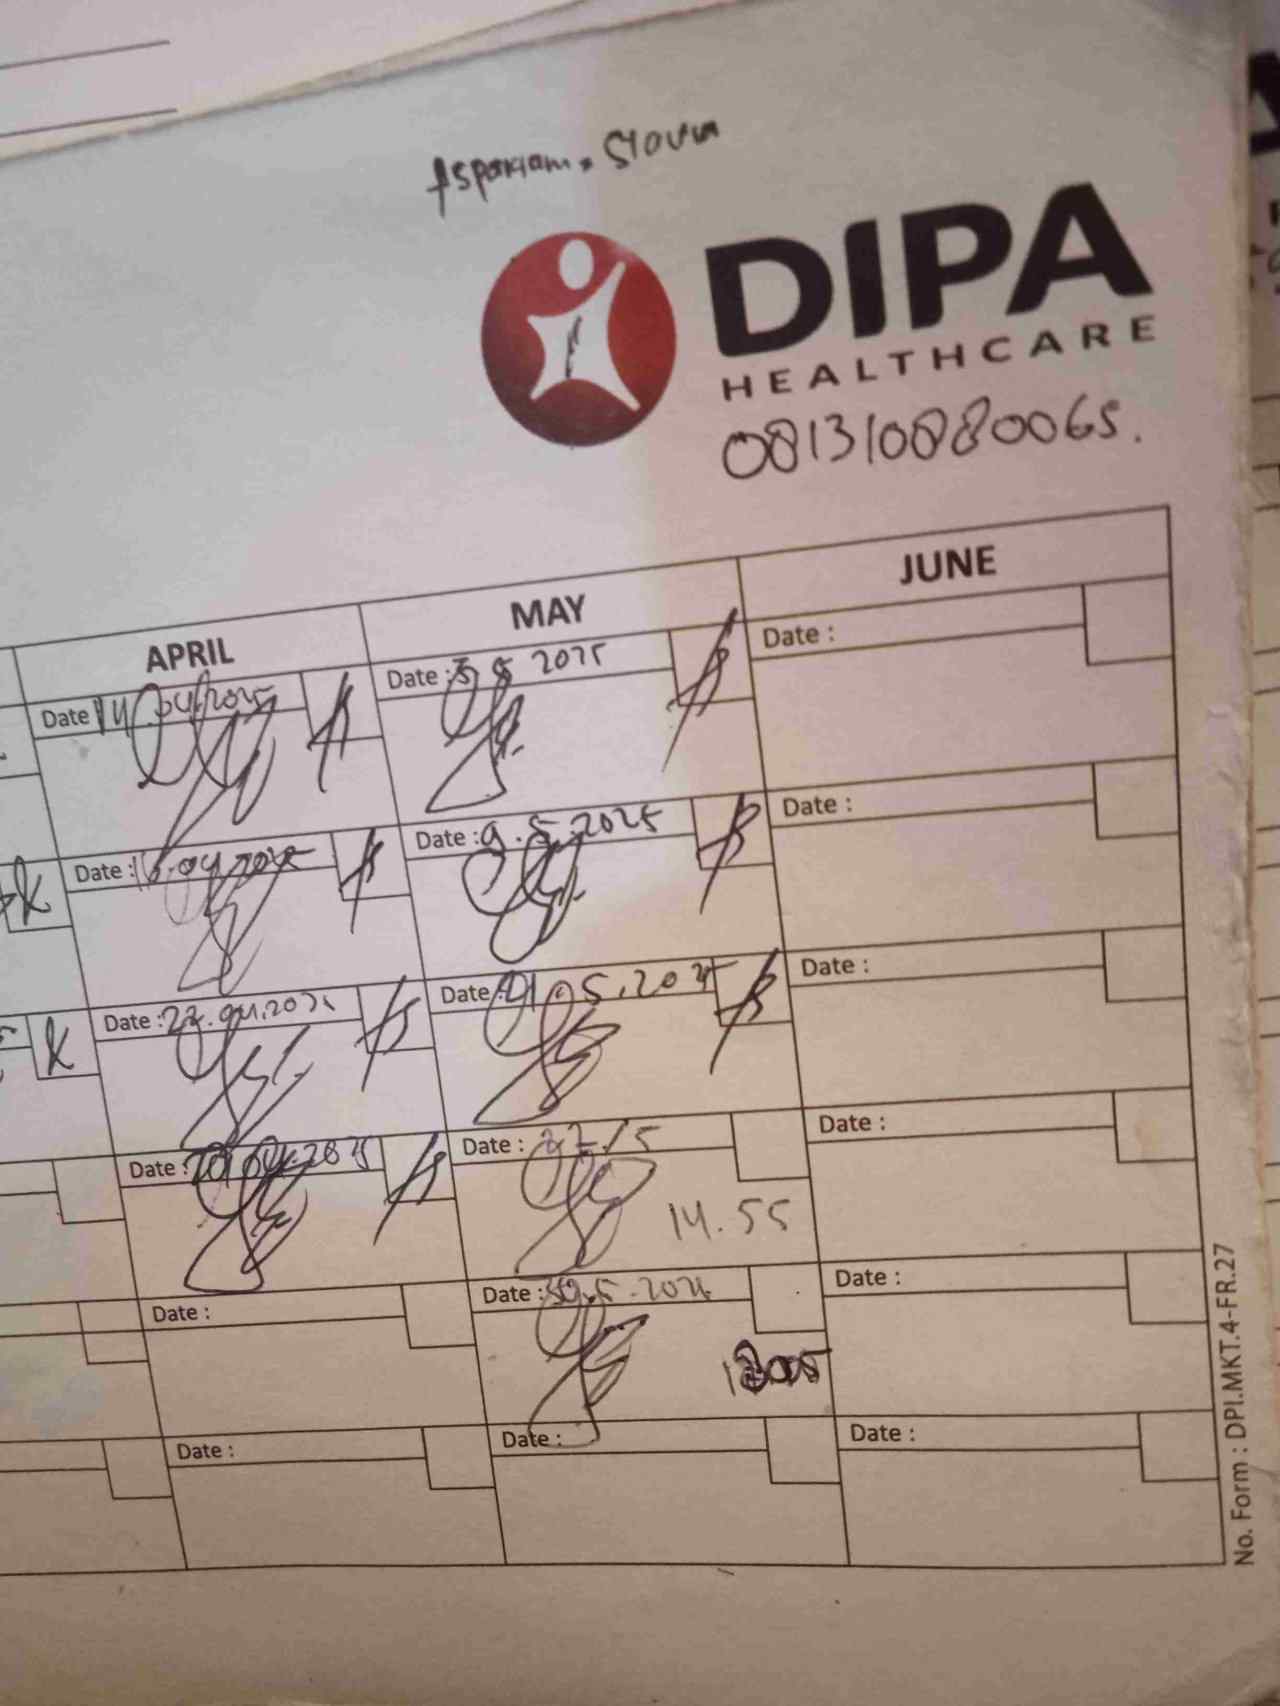 Asparnam. Slovin
DIPA
HEALTHCARE
081310880065.
APRIL MAY JUNE
Date 14.04.2025 Date : 5 5 2025 Date :
Date : 16.04.2025 Date : 9.5.2025 Date :
Date : 22.04.2025 Date 21.05.2025 Date :
Date : 29.04.2025 Date : 27/5 Date :
14.55
Date : Date : 30.5.2025 Date :
Date : Date : Date :
No. Form : DPI.MKT.4-FR.27